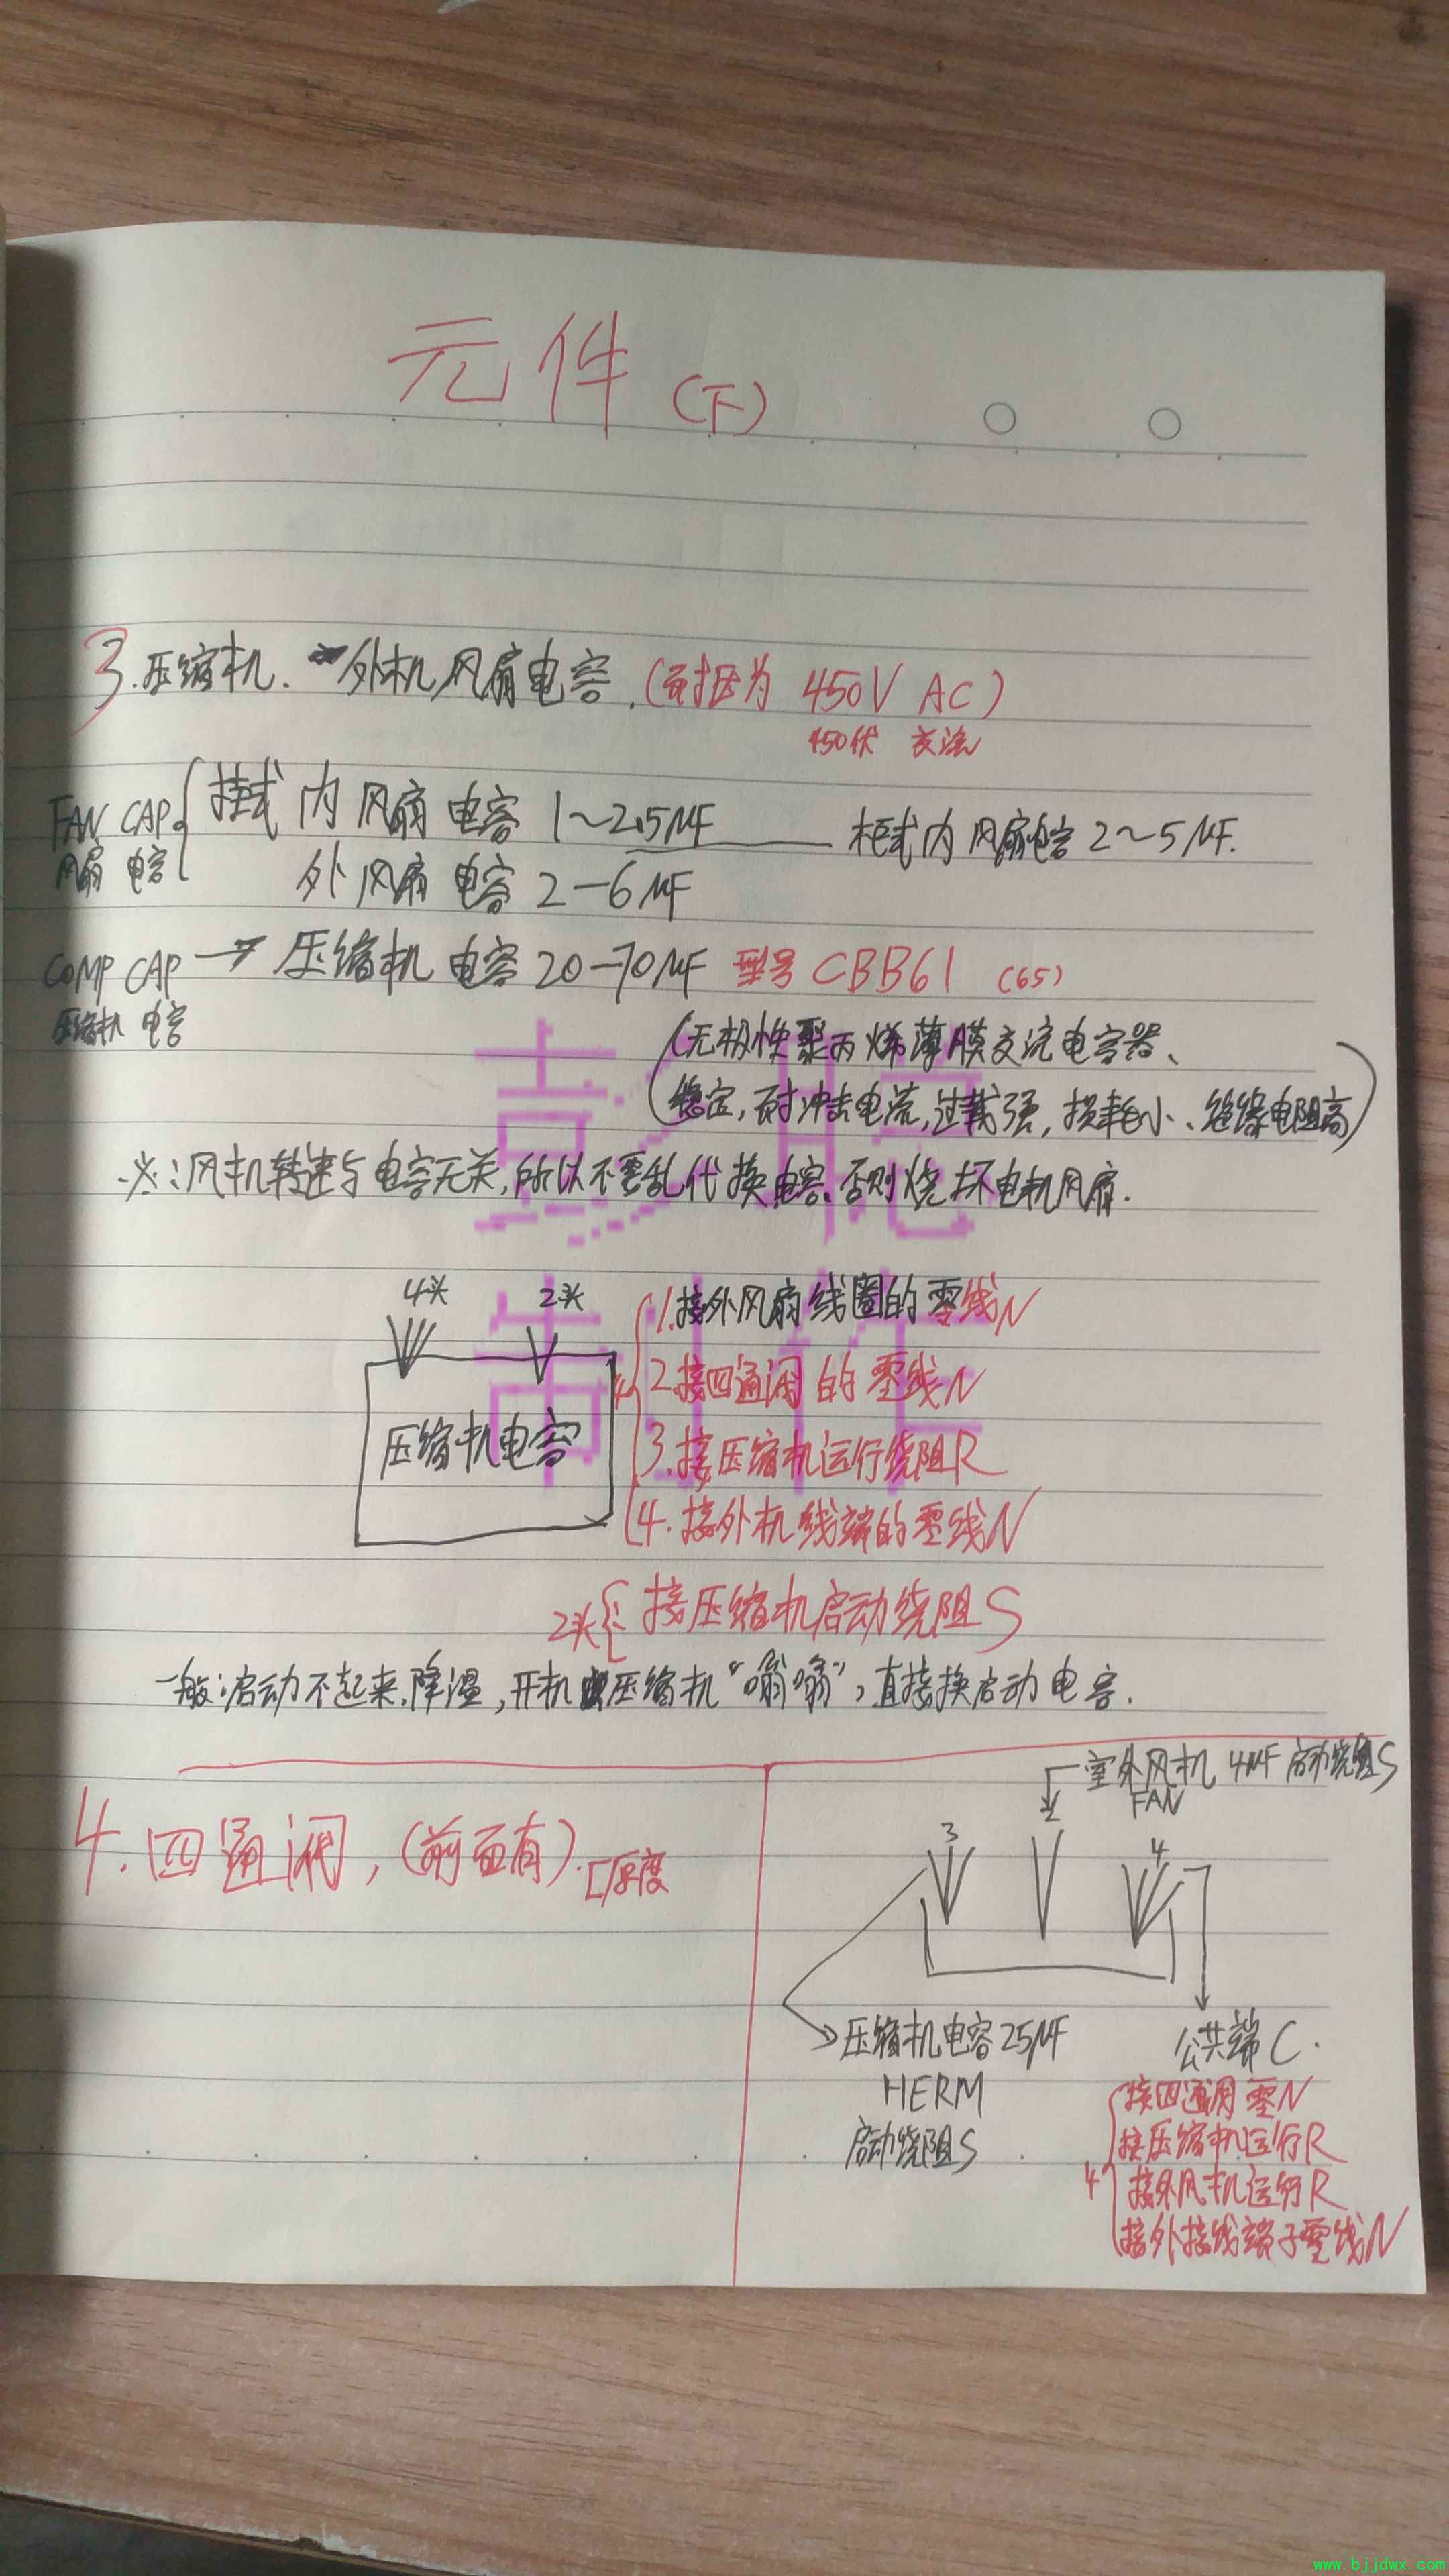 元件(下)
3.压缩机.外机风扇电容.(耐压为 450V AC)
450伏 交流
FAN CAP
风扇 电容
挂式 内风扇电容 1~2.5MF —— 柜式内风扇电容 2~5MF.
外风扇电容 2-6MF
COMP CAP → 压缩机电容 20-70MF 型号 CBB61 (65)
压缩机 电容
(无极性聚丙烯薄膜交流电容器、
稳定,耐冲击电流,过载强,损耗小、绝缘电阻高)
※:风机转速与电容无关,所以不要乱代换电容、否则烧坏电机风扇.
4头 2头
压缩机电容
4
1.接外风扇线圈的零线N
2.接四通阀的零线N
3.接压缩机运行绕阻R
4.接外机线端的零线N
2头{接压缩机启动绕阻S
一般:启动不起来.降温,开机压缩机“嗡嗡”,直接换启动电容.
4.四通阀,(前面有).[厚度
室外风机 4MF 启动绕阻S
FAN
3 2 4
压缩机电容25MF
HERM
启动绕阻S
公共端C.
4
接四通阀零N
接压缩机运行R
接外风机运行R
接外接线端子零线N
www.bjjdwx.com